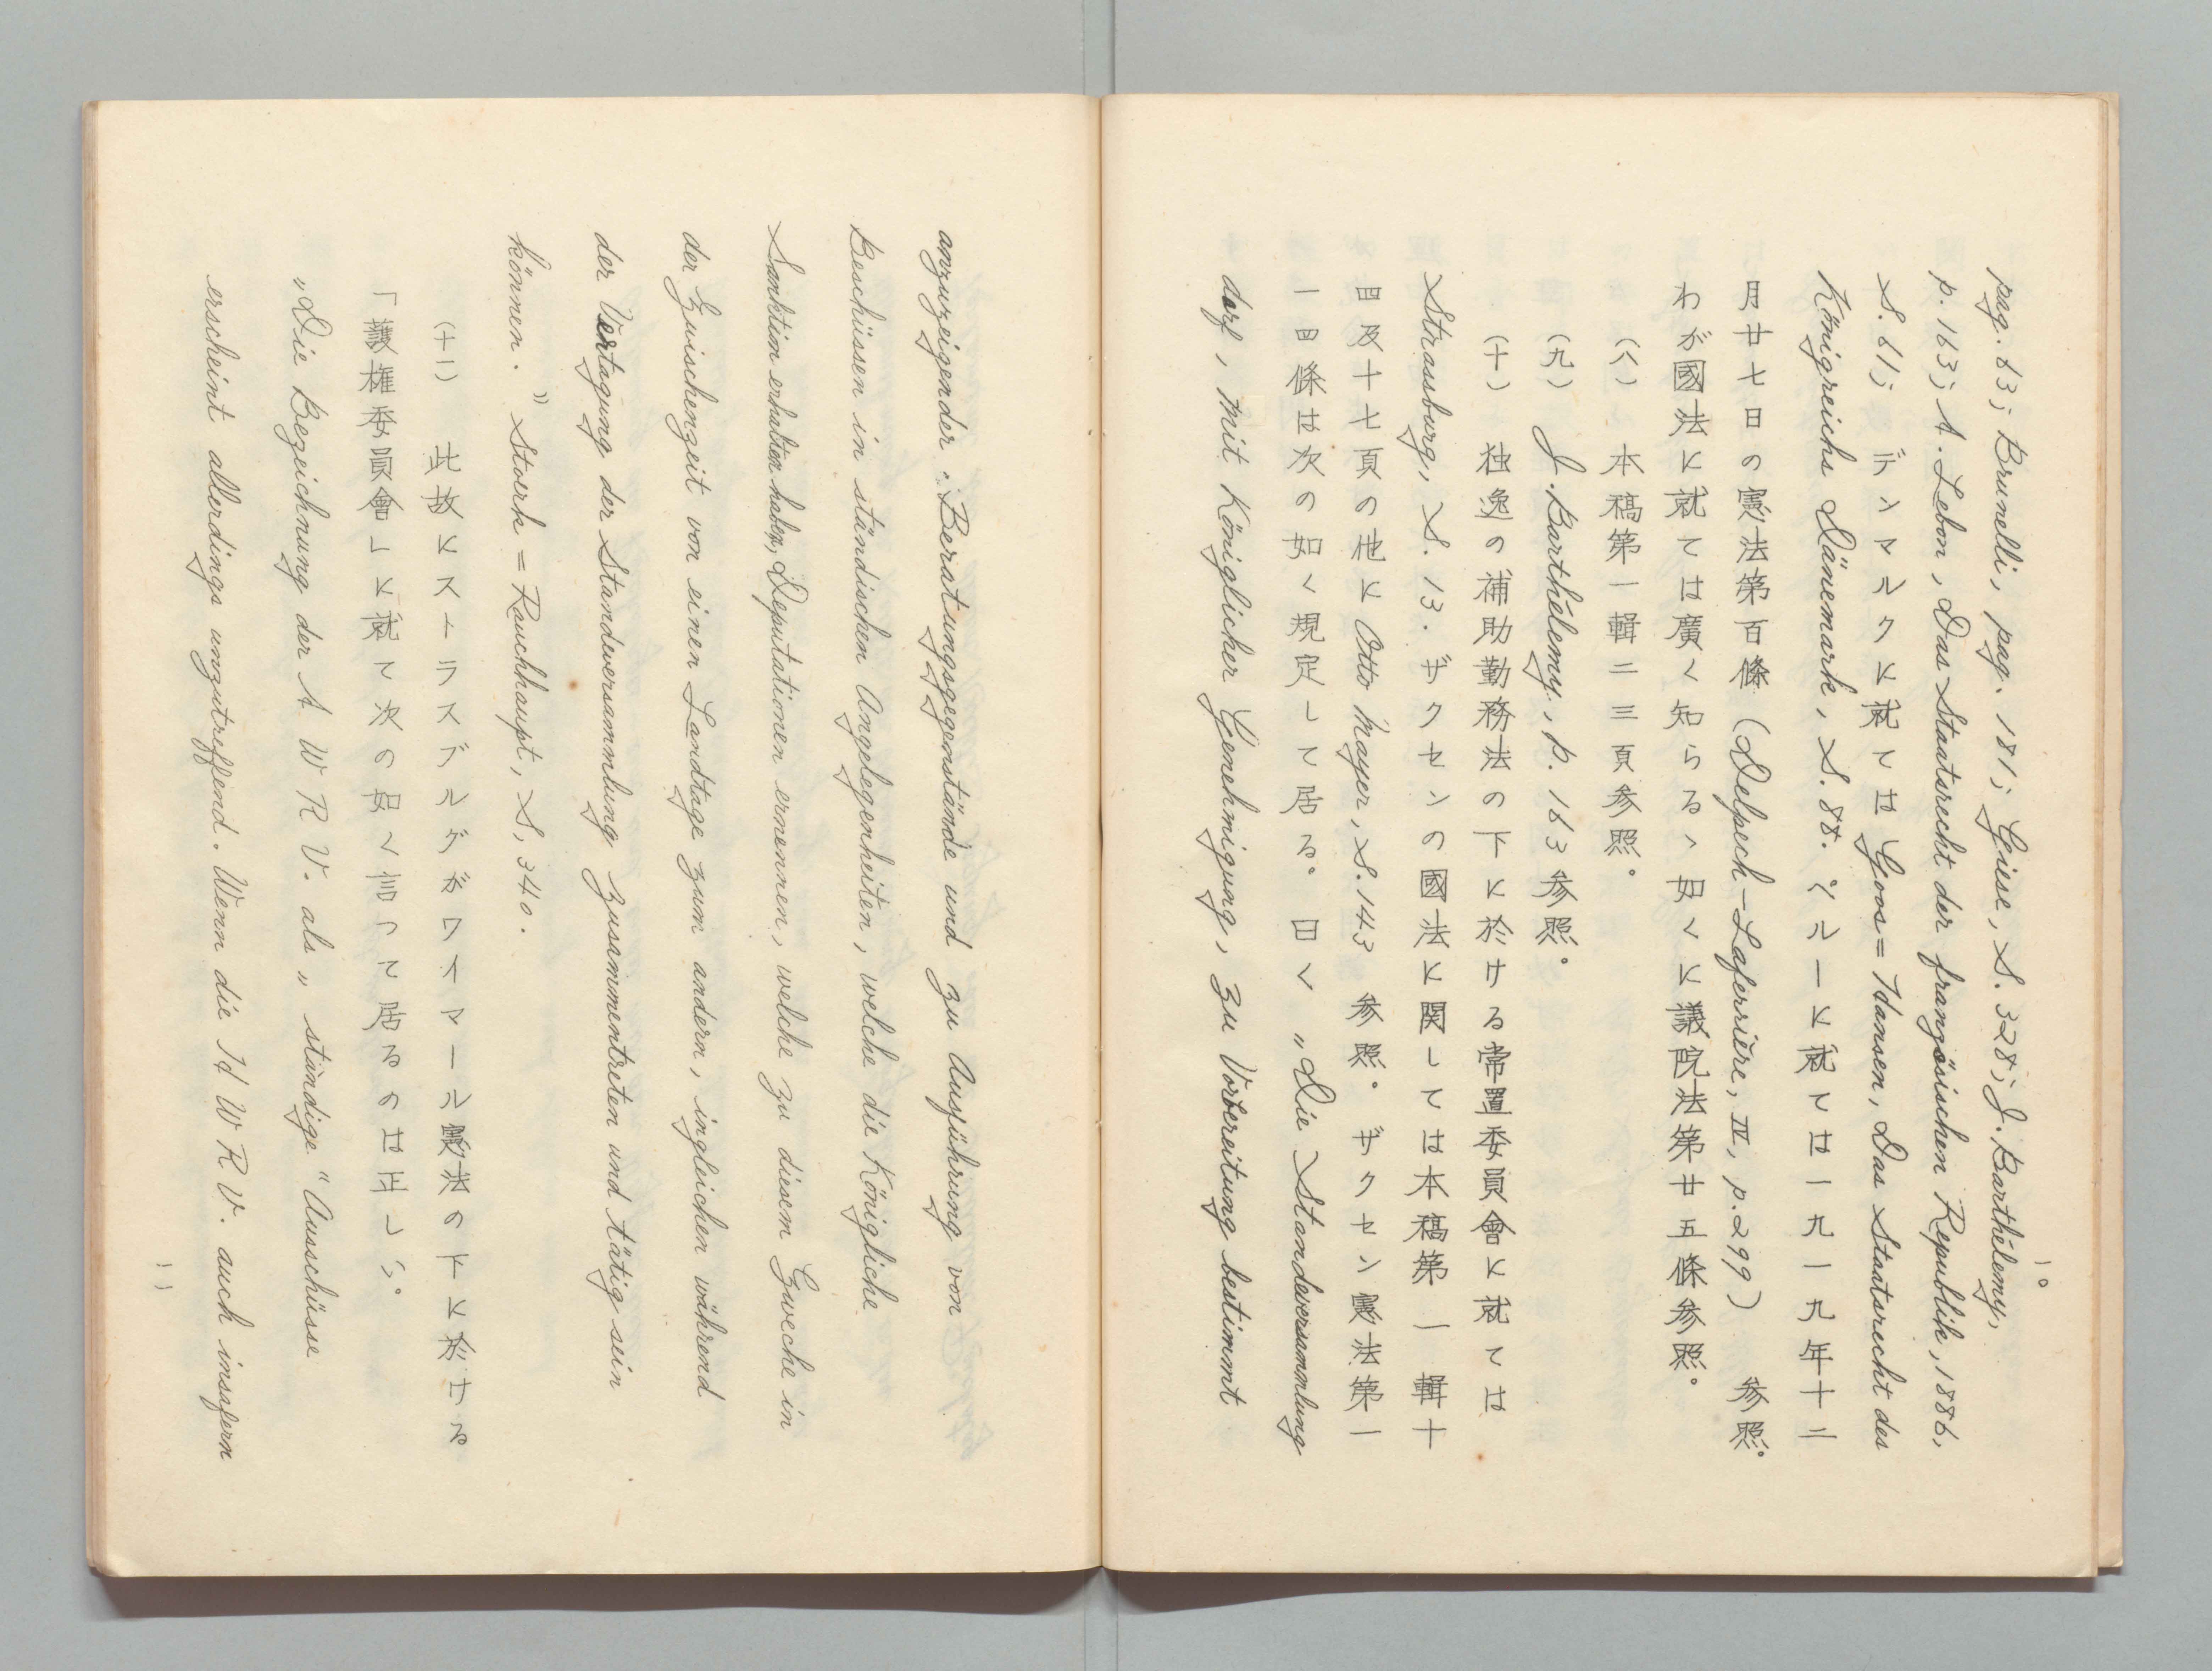 pag. 63; Brunelli, pag. 181; Giese, S. 328; J. Barthélemy,
p. 163; A. Lebon, Das Staatsrecht der französischen Republik, 1886,
S. 61; デンマルクに就ては Goos=Hansen, Das Staatsrecht des
Königreichs Dänemark, S. 88. ペルーに就ては一九一九年十二
月廿七日の憲法第百條(Delpech–Laferrière, II, p. 299) 参照。
わが國法に就ては廣く知らるゝ如くに議院法第廿五條参照。
(八) 本稿第一輯二三頁参照。
(九) J. Barthélemy, p. 163 参照。
(十) 独逸の補助勤務法の下に於ける常置委員會に就ては
Strassburg, S. 13. ザクセンの國法に関しては本稿第一輯十
四及十七頁の他に Otto Mayer, S. 143 参照。ザクセン憲法第一
一四條は次の如く規定して居る。曰く „Die Standeversammlung
darf, mit Königlicher Genehmigung, zu Vorbereitung bestimmt
一〇
anzuzeigender Beratungsgegenstände und zu Ausführung von
Beschüssen in ständischen Angelegenheiten, welche die Königliche
Sanktion erhalten haben, Deputationen ernennen, welche zu diesem Zwecke in
der Zwischenzeit von einen Landtage zum andern, ingleichen während
der Vertagung der Standeversammlung zusammentreten und tätig sein
können.” Stoerk=Rauchhaupt, S. 340.
(十一) 此故にストラスブルグがワイマール憲法の下に於ける
「護権委員會」に就て次の如く言つて居るのは正しい。
„Die Bezeichnung der A W R V. als „ständige“ Ausschüsse
erscheint allerdings unzutreffend. Wenn die H W R V. auch insofern
一一